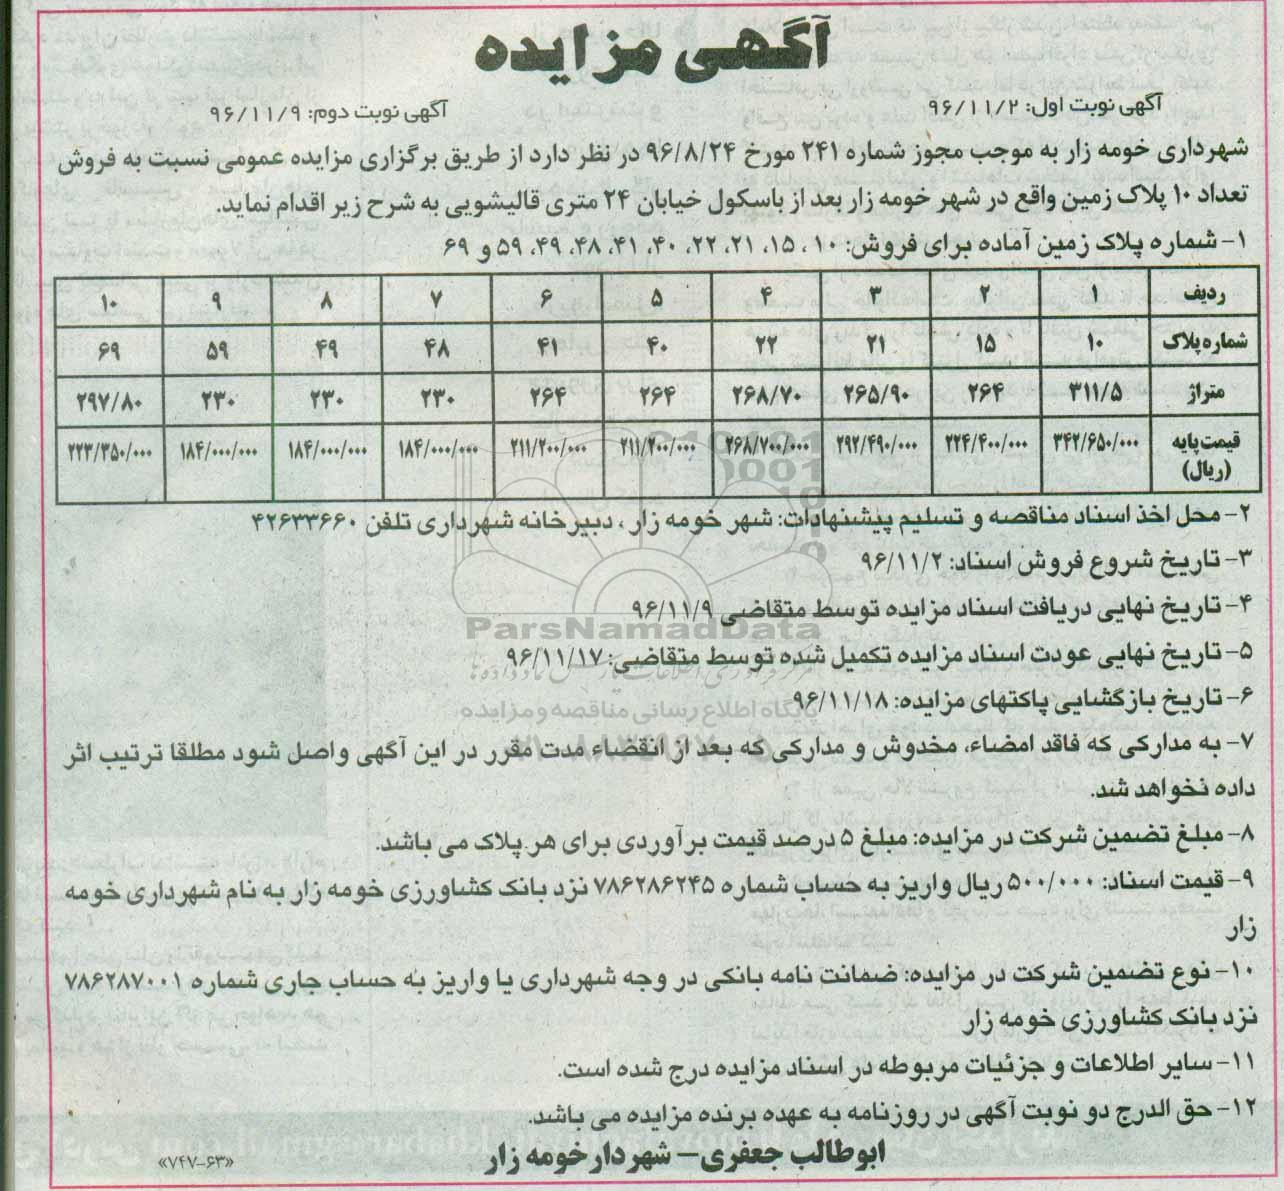 آگهی مزایده
آگهی نوبت اول: ۹۶/۱۱/۲ آگهی نوبت دوم: ۹۶/۱۱/۹
شهرداری خومه زار به موجب مجوز شماره ۲۴۱ مورخ ۹۶/۸/۲۴ در نظر دارد از طریق برگزاری مزایده عمومی نسبت به فروش
تعداد ۱۰ پلاک زمین واقع در شهر خومه زار بعد از باسکول خیابان ۲۴ متری قالیشویی به شرح زیر اقدام نماید.
۱- شماره پلاک زمین آماده برای فروش: ۱۰ ، ۱۵، ۲۱، ۲۲، ۴۰، ۴۱، ۴۸، ۴۹، ۵۹ و ۶۹
ردیف ۱ ۲ ۳ ۴ ۵ ۶ ۷ ۸ ۹ ۱۰
شماره پلاک ۱۰ ۱۵ ۲۱ ۲۲ ۴۰ ۴۱ ۴۸ ۴۹ ۵۹ ۶۹
متراژ ۳۱۱/۵ ۲۶۴ ۲۶۵/۹۰ ۲۶۸/۷۰ ۲۶۴ ۲۶۴ ۲۳۰ ۲۳۰ ۲۳۰ ۲۹۷/۸۰
قیمت پایه ۳۴۲/۶۵۰/۰۰۰ ۲۲۴/۴۰۰/۰۰۰ ۲۹۲/۴۹۰/۰۰۰ ۲۶۸/۷۰۰/۰۰۰ ۲۱۱/۲۰۰/۰۰۰ ۲۱۱/۲۰۰/۰۰۰ ۱۸۴/۰۰۰/۰۰۰ ۱۸۴/۰۰۰/۰۰۰ ۱۸۴/۰۰۰/۰۰۰ ۲۲۳/۳۵۰/۰۰۰
(ریال)
۲- محل اخذ اسناد مناقصه و تسلیم پیشنهادات: شهر خومه زار ، دبیرخانه شهرداری تلفن ۴۲۶۳۳۶۶۰
۳- تاریخ شروع فروش اسناد: ۹۶/۱۱/۲
۴- تاریخ نهایی دریافت اسناد مزایده توسط متقاضی ۹۶/۱۱/۹
ParsNamadData
۵- تاریخ نهایی عودت اسناد مزایده تکمیل شده توسط متقاضی: ۹۶/۱۱/۱۷
۶- تاریخ بازگشایی پاکتهای مزایده: ۹۶/۱۱/۱۸
پایگاه اطلاع رسانی مناقصه و مزایده
۷- به مدارکی که فاقد امضاء، مخدوش و مدارکی که بعد از انقضاء مدت مقرر در این آگهی واصل شود مطلقا ترتیب اثر
داده نخواهد شد.
۸- مبلغ تضمین شرکت در مزایده: مبلغ ۵ درصد قیمت برآوردی برای هر پلاک می باشد.
۹- قیمت اسناد: ۵۰۰/۰۰۰ ریال واریز به حساب شماره ۷۸۶۲۸۶۲۴۵ نزد بانک کشاورزی خومه زار به نام شهرداری خومه
زار
۱۰- نوع تضمین شرکت در مزایده: ضمانت نامه بانکی در وجه شهرداری یا واریز به حساب جاری شماره ۷۸۶۲۸۷۰۰۱
نزد بانک کشاورزی خومه زار
۱۱- سایر اطلاعات و جزئیات مربوطه در اسناد مزایده درج شده است.
۱۲- حق الدرج دو نوبت آگهی در روزنامه به عهده برنده مزایده می باشد.
ابوطالب جعفری- شهردار خومه زار
«۷۴۷-۶۳»